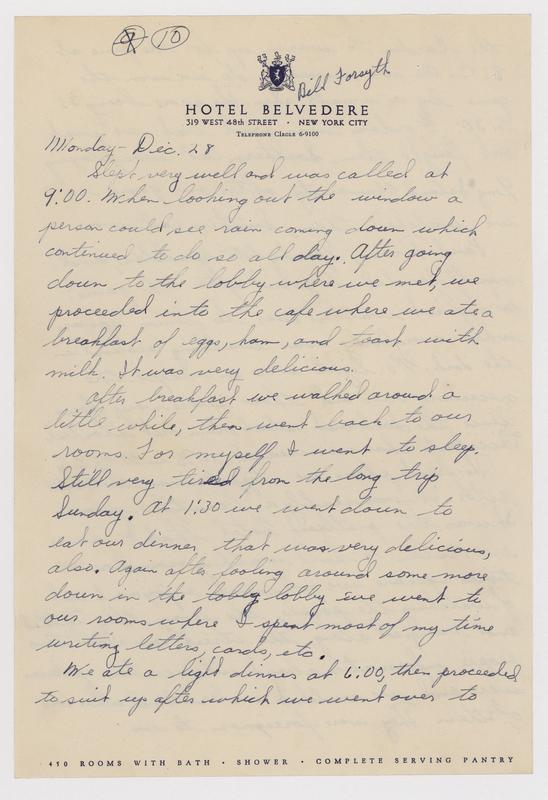 9 10
Bill Forsyth
HOTEL BELVEDERE
319 WEST 48th STREET · NEW YORK CITY
TELEPHONE CIRCLE 6-9100
Monday - Dec. 28
Slept very well and was called at
9:00. When looking out the window a
person could see rain coming down which
continued to do so all day. After going
down to the lobby where we met, we
proceeded into the cafe where we ate a
breakfast of eggs, ham, and toast with
milk. It was very delicious.
After breakfast we walked around a
little while, then went back to our
rooms. For myself I went to sleep.
Still very tired from the long trip
Sunday. At 1:30 we went down to
eat our dinner that was very delicious,
also. Again after looling around some more
down in the tobby lobby we went to
our rooms where I spent most of my time
writing letters, cards, etc.
We ate a light dinner at 6:00, then proceeded
to suit up after which we went over to
450 ROOMS WITH BATH · SHOWER · COMPLETE SERVING PANTRY